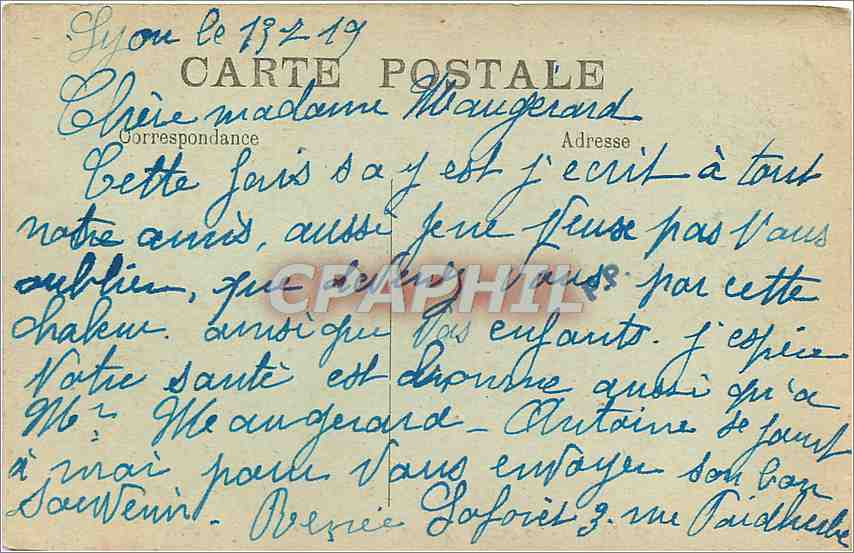 Lyon le 13 7 19
CARTE POSTALE
Chère madame Maugerard
Correspondance Adresse
Cette fois sa y est j'ecrit à tout
notre amis, aussi je ne veux pas vous
oublier, que devenez vous ?? par cette
CPAPHIL
chaleur. ainsi que vos enfants. j'espère
votre santé est bonne aussi qu'a
Mr Maugerard – Antoine se joint
à moi pour vous envoyer son bon
souvenir. Renée Laforêt 3. rue Faidherbe